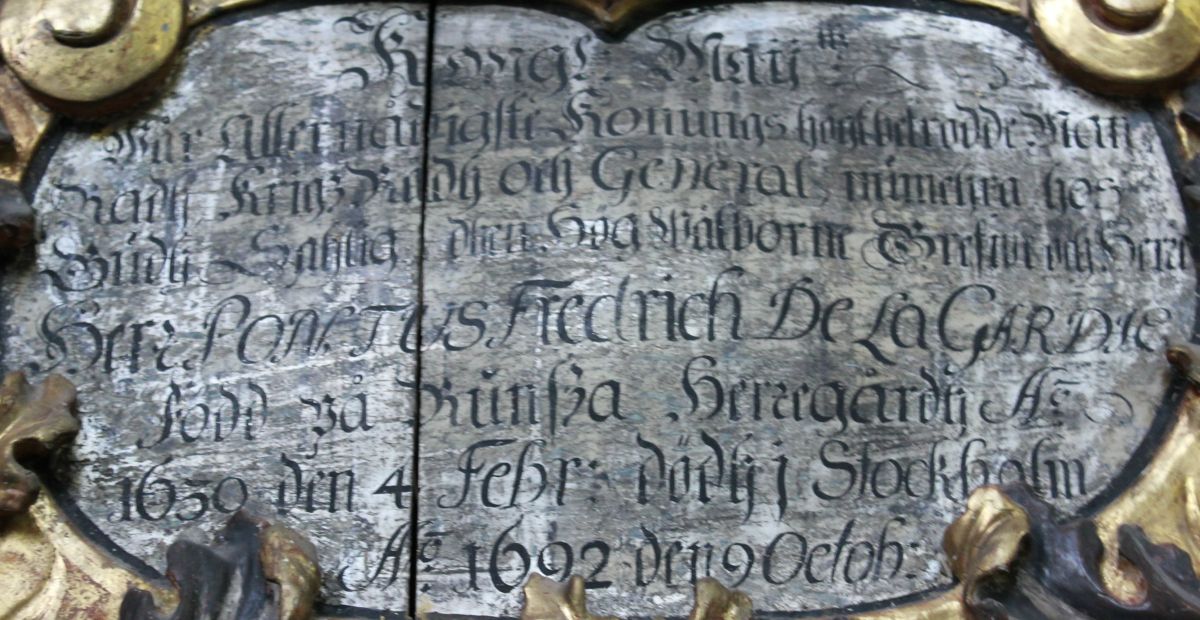 Kongl. Maij:tz
War Allernådigste Konungs högstbetrodde Man
Rådh Krigz Rådh och General
Gudh Sahlig. dhen Höga Wälborne Grefwe och Herre
Herr PONTUS Fredrich De la GARDIE
Född på Runsza Herregårdh A:o
1630 den 4 Febr: dödh j Stockholm
A:o 1692 den 9 Octob: